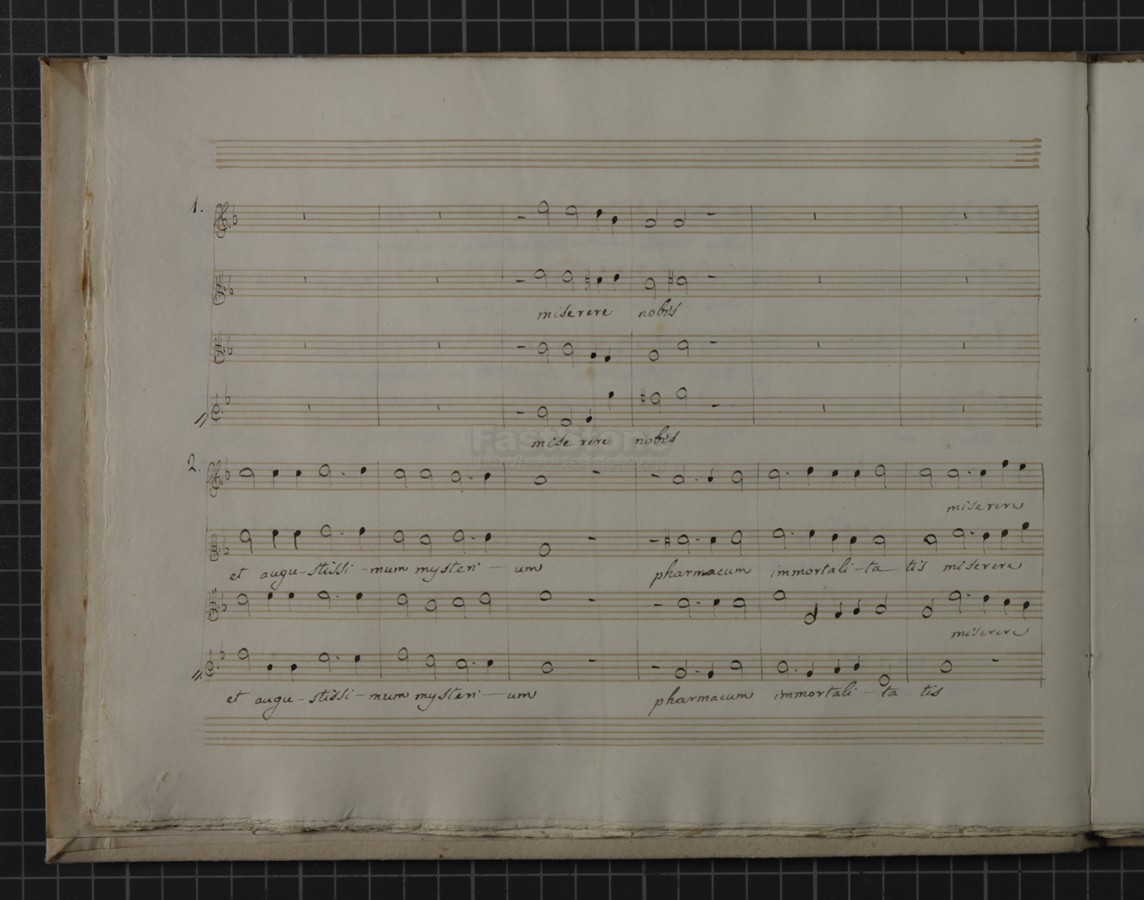 1.
miserere nobis
miserere nobis
FastStone
2.
miserere
et augu-stissi-mum mysteri-um pharmacum immortali-ta-tis miserere
miserere
et augu-stissi-mum mysteri-um pharmacum immortali-ta-tis